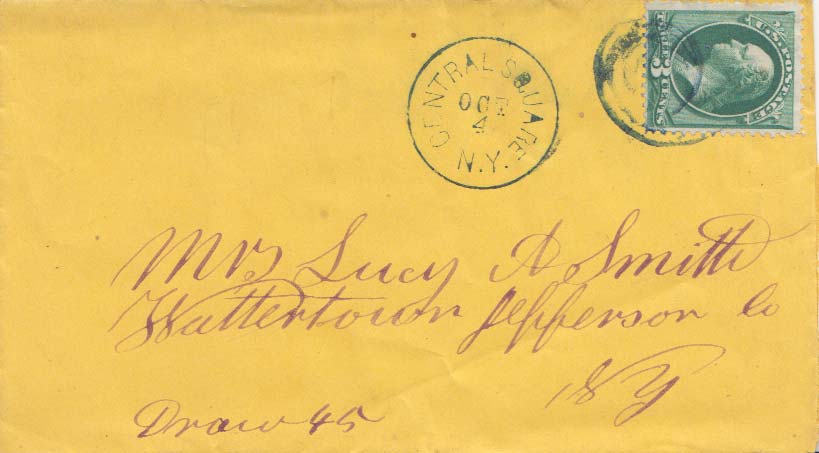 CENTRAL SQUARE
OCT
4
N.Y.
U.S. POSTAGE
THREE 3 CENTS
Mrs Lucy A Smith
Wattertown Jefferson Co
N Y
Draw 45